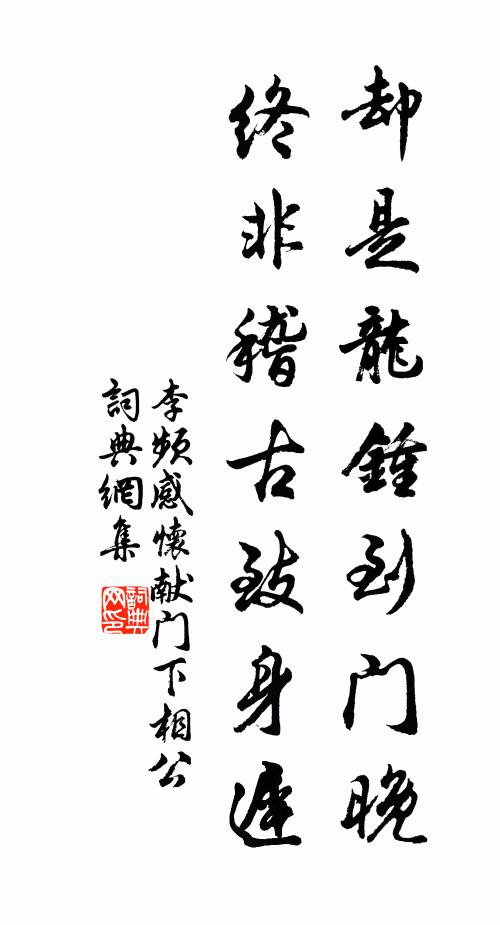 却是龍鍾到門晚
終非稽古致身遲
李頻感懷献門下相公
詞典網集
詞典网印